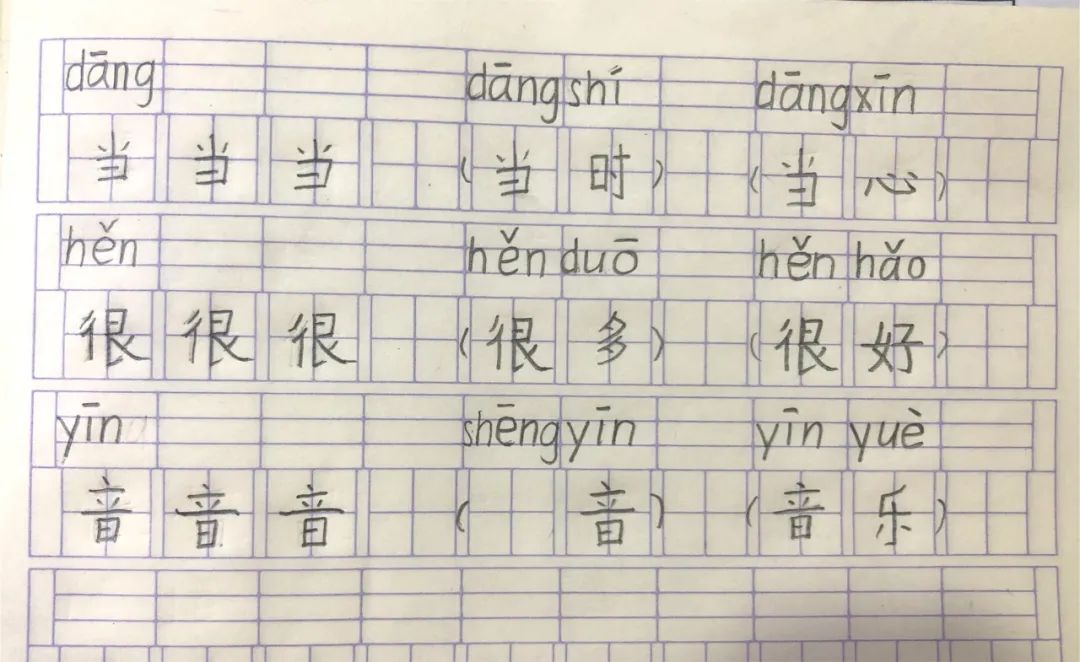 dāng dāngshí dāngxīn
当 当 当 (当 时) (当 心)
hěn hěn duō hěn hǎo
很 很 很 (很 多) (很 好)
yīn shēng yīn yīn yuè
音 音 音 ( 音) (音 乐)